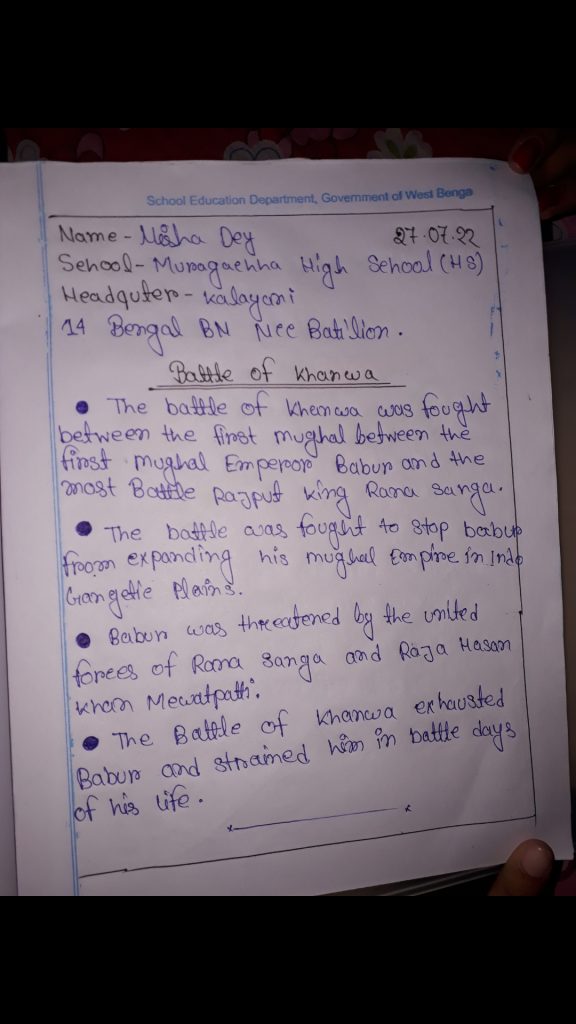 School Education Department, Government of West Benga
Name - Misha Dey 27.07.22
School - Muragachha High School (HS)
Headquter - Kalayani
14 Bengal BN Ncc Batilion.
Battle of Khanwa
• The battle of Khanwa was fought
between the first mughal between the
first mughal Emperor Babur and the
most Battle Rajput king Rana Sanga.
• The battle was fought to stop babur
froom expanding his mughal Empire in Indo
Gangetic Plains.
• Babur was threatened by the united
forces of Rana Sanga and Raja Hasan
khan Mewatpatti.
• The Battle of Khanwa exhausted
Babur and strained him in battle days
of his life.